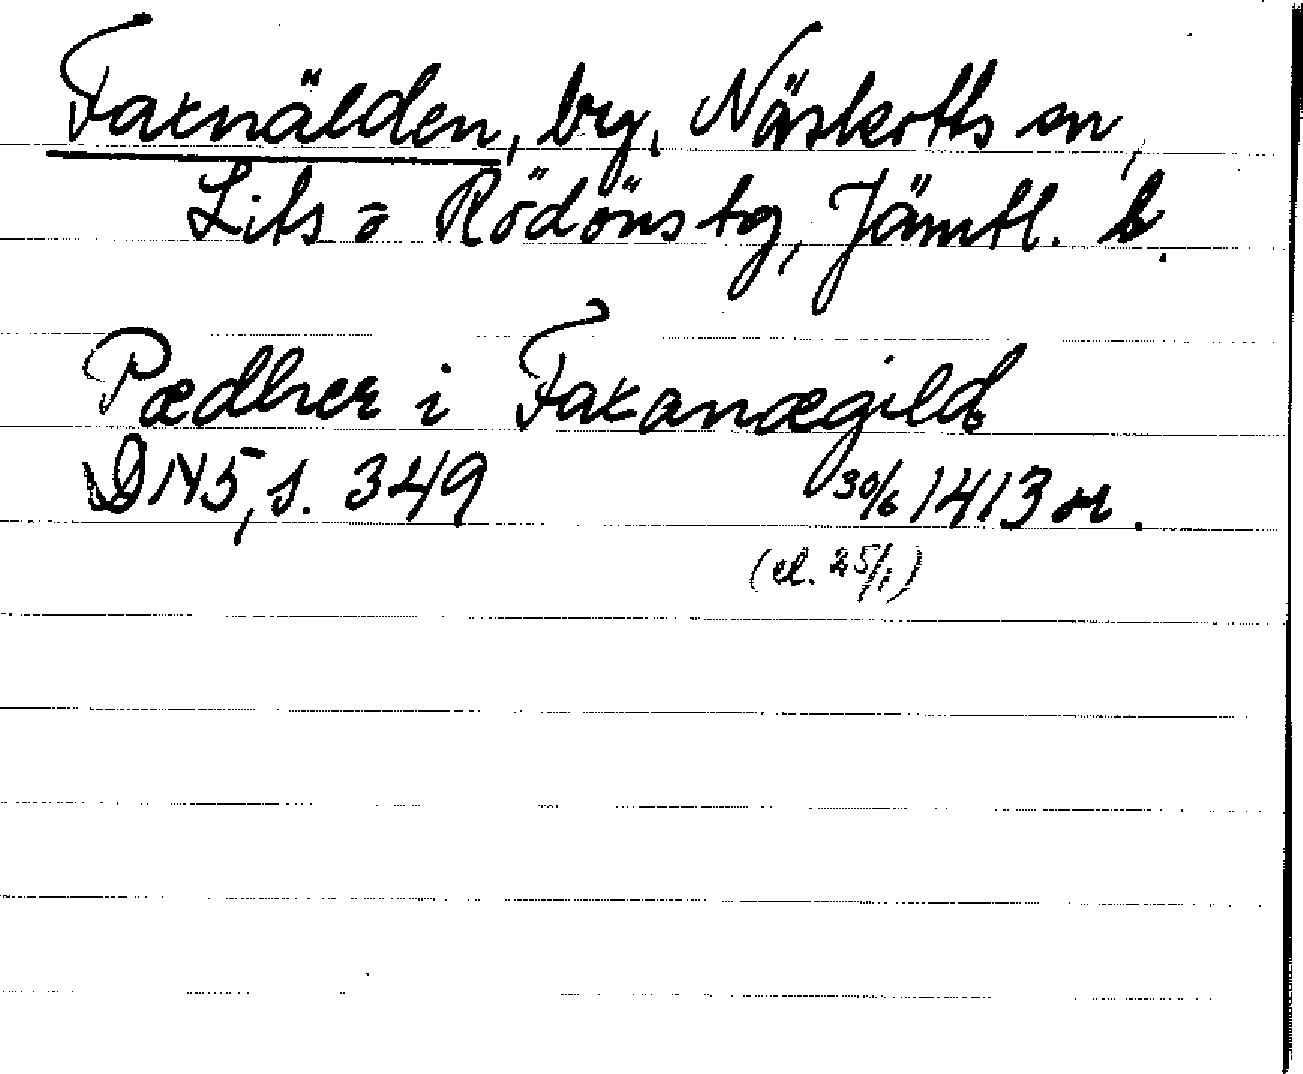 Faxnälden, by, Näskotts sn,
Lits o Rödöns tg, Jämtl. l.
Pædher i Faxanægild
DN5, s. 349 30/6 1413 or.
(el. 25/1)